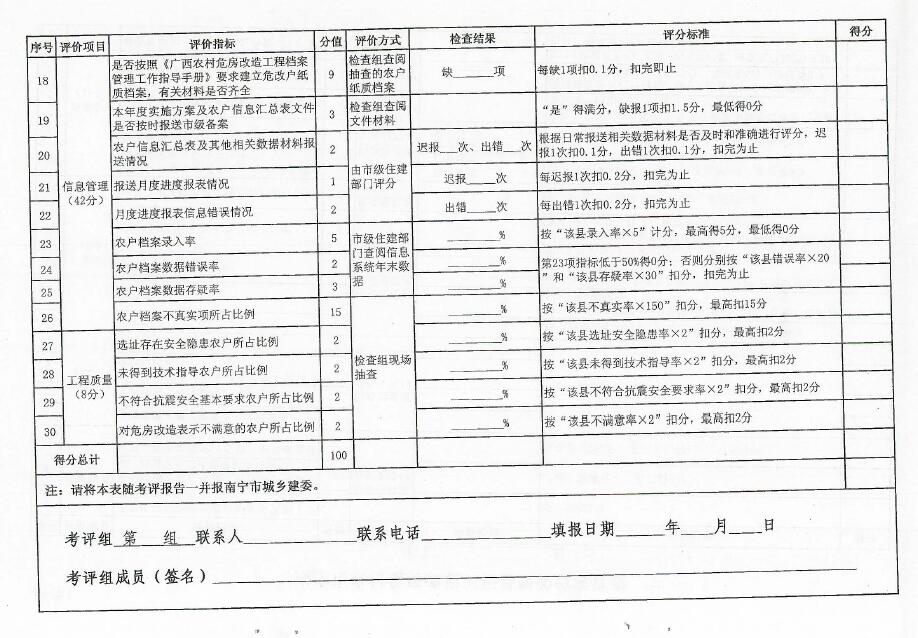 序号 评价项目 评价指标 分值 评价方式 检查结果 评分标准 得分
18 是否按照《广西农村危房改造工程档案管理工作指导手册》要求建立危改户纸质档案，有关材料是否齐全 9 检查组查阅抽查的农户纸质档案 缺______项 每缺1项扣0.1分，扣完即止
19 本年度实施方案及农户信息汇总表文件是否按时报送市级备案 3 检查组查阅文件材料 “是”得满分，缺报1项扣1.5分，最低得0分
20 农户信息汇总表及其他相关数据材料报送情况 2 迟报___次、出错___次 根据日常报送相关数据材料是否及时和准确进行评分，迟报1次扣0.1分，出错1次扣0.1分，扣完为止
信息管理（42分） 由市级住建部门评分
21 报送月度进度报表情况 1 迟报____次 每迟报1次扣0.2分，扣完为止
22 月度进度报表信息错误情况 2 出错____次 每出错1次扣0.2分，扣完为止
23 农户档案录入率 5 市级住建部门查阅信息系统年末数据 ________% 按“该县录入率×5”计分，最高得5分，最低得0分
24 农户档案数据错误率 2 ________% 第23项指标低于50%得0分；否则分别按“该县错误率×20”和“该县存疑率×30”扣分，扣完为止
25 农户档案数据存疑率 3 ________%
26 农户档案不真实项所占比例 15 ________% 按“该县不真实率×150”扣分，最高扣15分
27 选址存在安全隐患农户所占比例 2 ________% 按“该县选址安全隐患率×2”扣分，最高扣2分
工程质量（8分） 检查组现场抽查
28 未得到技术指导农户所占比例 2 ________% 按“该县未得到技术指导率×2”扣分，最高扣2分
29 不符合抗震安全基本要求农户所占比例 2 ________% 按“该县不符合抗震安全要求率×2”扣分，最高扣2分
30 对危房改造表示不满意的农户所占比例 2 ________% 按“该县不满意率×2”扣分，最高扣2分
得分总计 100
注：请将本表随考评报告一并报南宁市城乡建委。
考评组 第 组 联系人____________联系电话______________填报日期_____年___月___日
考评组成员（签名）________________________________